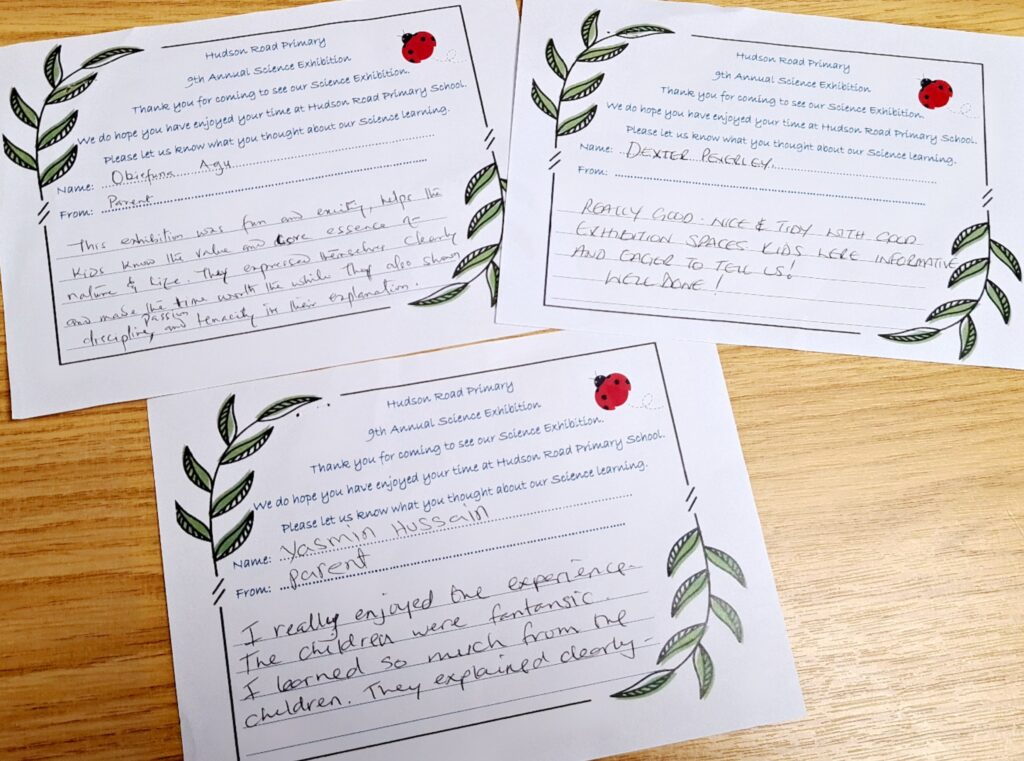 Hudson Road Primary
9th Annual Science Exhibition
Thank you for coming to see our Science Exhibition.
We do hope you have enjoyed your time at Hudson Road Primary School.
Please let us know what you thought about our Science learning.
Name: Obiefuna Agu
From: Parent
This exhibition was fun and exciting, helps the
kids know the value and core essence of
nature & life. They expressed themselves clearly
and made the time worth the while they also shown
passion
discipline, and tenacity in their explanation.
Hudson Road Primary
9th Annual Science Exhibition
Thank you for coming to see our Science Exhibition.
We do hope you have enjoyed your time at Hudson Road Primary School.
Please let us know what you thought about our Science learning.
Name: DEXTER
From:
REALLY GOOD. NICE & TIDY WITH GOOD
EXHIBITION SPACES KIDS WERE INFORMATIVE
AND EAGER TO TELL US!
WELL DONE!
Hudson Road Primary
9th Annual Science Exhibition
Thank you for coming to see our Science Exhibition.
We do hope you have enjoyed your time at Hudson Road Primary School.
Please let us know what you thought about our Science learning.
Name: Yasmin Hussain
From: parent
I really enjoyed the experience.
The children were fantansic.
I learned so much from the
children. They explained clearly.